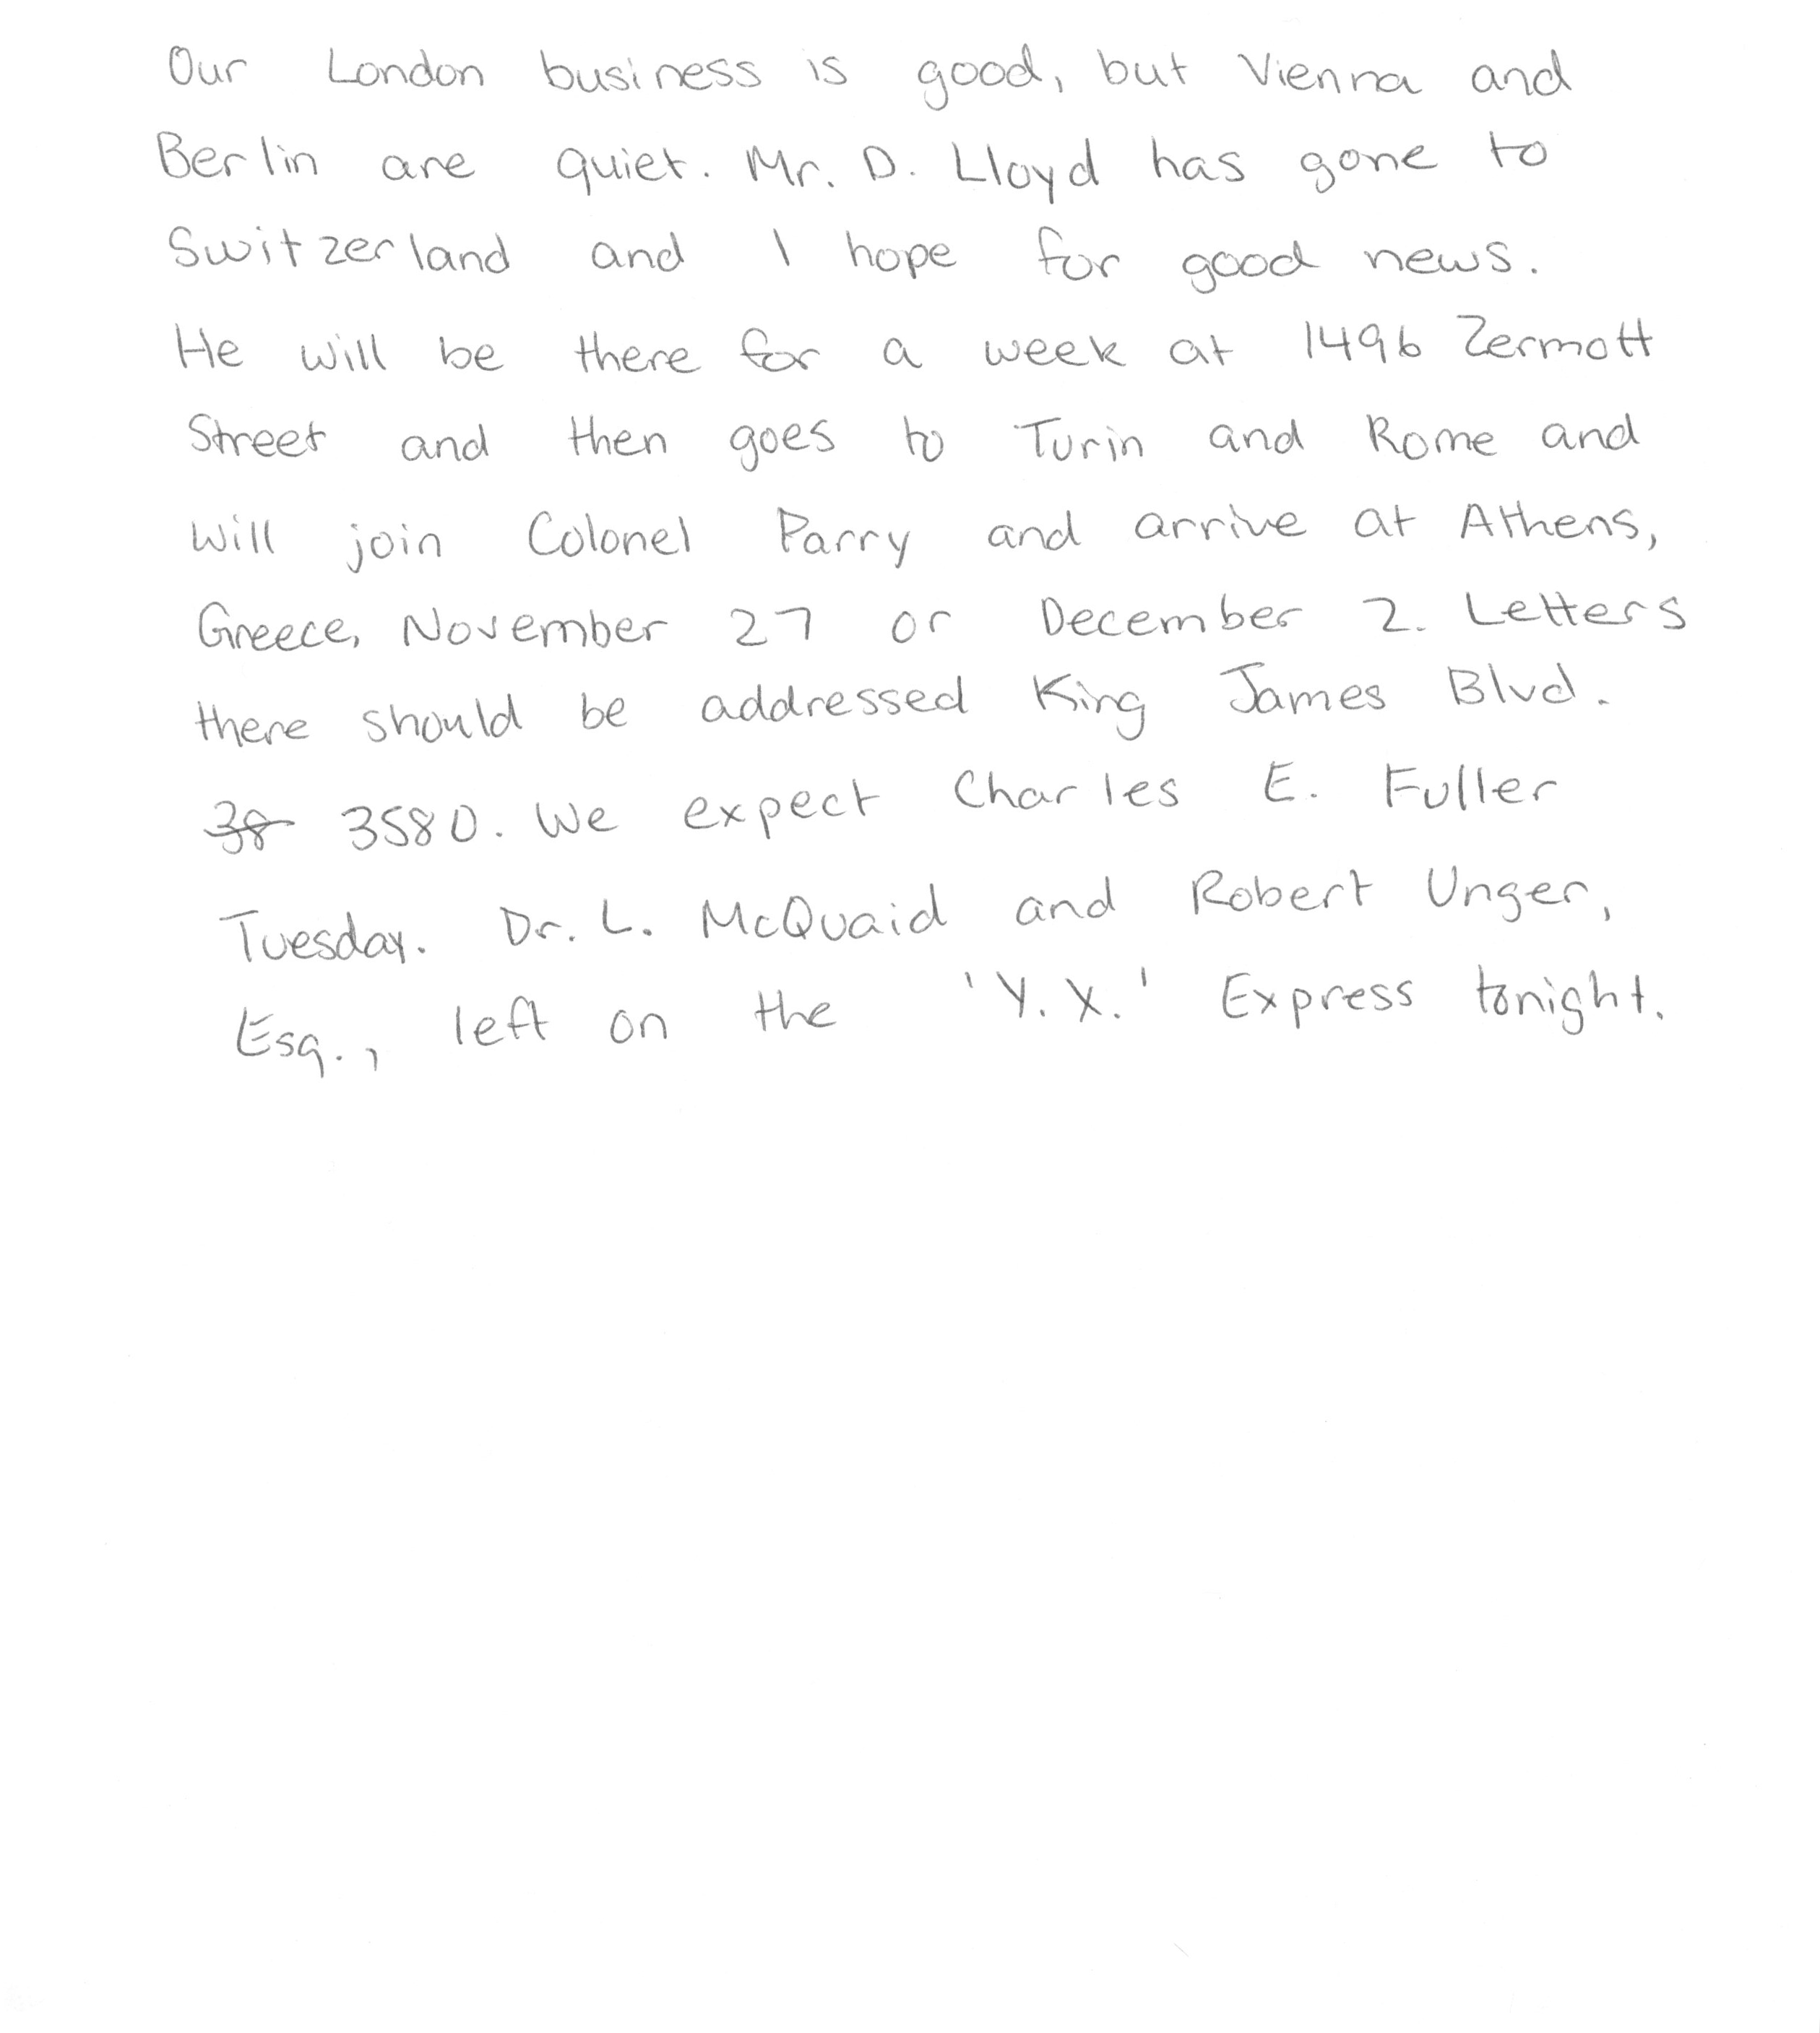 Our London business is good, but Vienna and
Berlin are quiet. Mr. D. Lloyd has gone to
Switzerland and I hope for good news.
He will be there for a week at 1496 Zermott
Street and then goes to Turin and Rome and
will join Colonel Parry and arrive at Athens,
Greece, November 27 or December 2. Letters
there should be addressed King James Blvd.
38 3580. We expect Charles E. Fuller
Tuesday. Dr. L. McQuaid and Robert Unger,
Esq., left on the 'Y.X.' Express tonight.